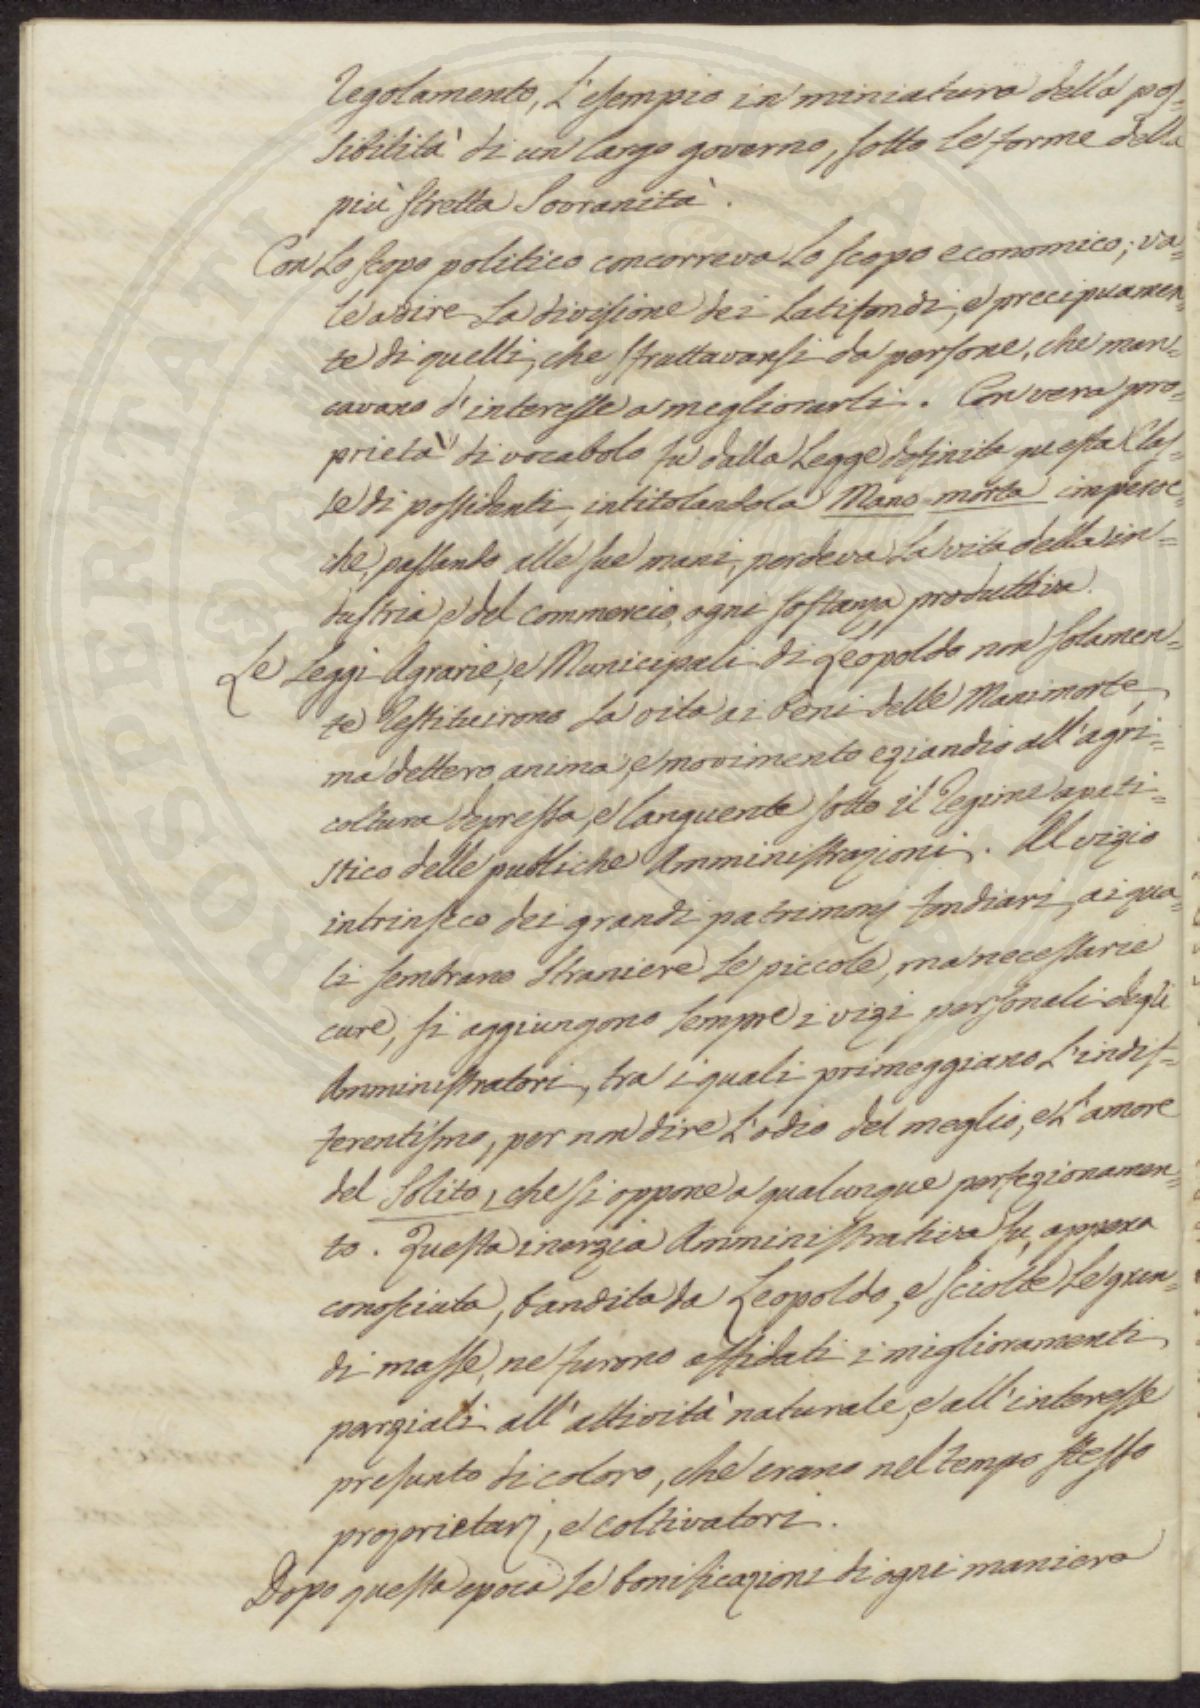 Regolamento, L'esempio in miniatura della pos=
sibilità di un largo governo, sotto le forme della
più stretta Sovranità.
Con Lo scopo politico concorreva Lo scopo economico; va=
le a dire La divisione dei Latifondi, e precipuamen=
te di quelli, che sfruttavansi da persone, che man=
cavano d'interesse a megliorarli. Con vera pro=
prietà di vocabolo fu dalla Legge definita questa Clas=
se di possidenti, intitolandola Mano-morta imperoc=
chè, passando alle sue mani, perdeva La vita della in=
dustria, e del commercio, ogni sostanza produttiva.
Le Leggi Agrarie, e Municipali di Leopoldo non solamen=
te Restituirono La vita ai beni delle Manimorte,
ma dettero anima, e movimento eziandio all'agri=
coltura depressa, e languente sotto il Regime apati=
stico delle pubbliche Amministrazioni. Al vizio
intrinseco dei grandi patrimonj fondiari, ai qua=
li sembrano straniere Le piccole, ma necessarie
cure, si aggiungono sempre i vizi personali degli
Amministratori, tra i quali primeggiano L'indif=
ferentismo, per non dire L'odio del meglio, e L'amore
del Solito, che si oppone a qualunque perfezionamen=
to. Questa inerzia Amministrativa fu, appena
conosciuta, bandita da Leopoldo, e sciolte Le gran=
di masse, ne furono affidati i miglioramenti
parziali all'attività naturale, e all'interesse
presunto di coloro, che erano nel tempo stesso
proprietarj, e coltivatori.
Dopo questa epoca Le bonificazioni di ogni maniera
ROSPERITATI